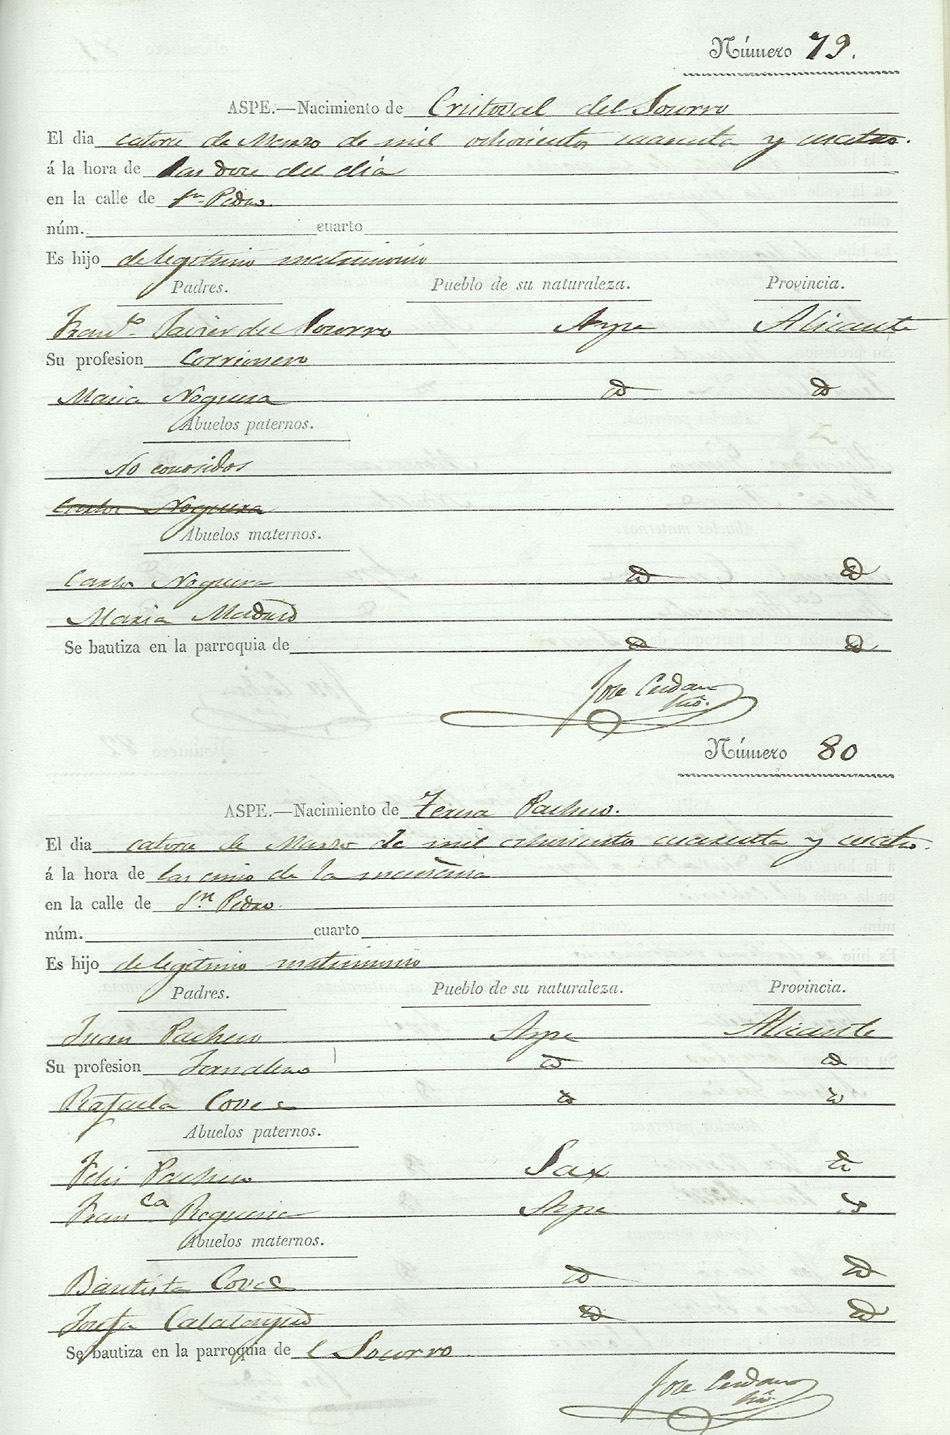 Número 79.
ASPE.—Nacimiento de Cristoval del Socorro
El dia catorce de Marzo de mil ochocientos cuarenta y cuatro.
á la hora de las doce del dia
en la calle de Sn. Pedro.
núm. cuarto
Es hijo de legitimo matrimonio
Padres. Pueblo de su naturaleza. Provincia.
Franco. Javier del Socorro Aspe Alicante
Su profesion
Maria Noguera id id
Abuelos paternos.
No conosidos
Carlos Noguera
Abuelos maternos.
Carlos Noguera id id
Maria
Se bautiza en la parroquia de id id
Jose Cerdan
Número 80
ASPE.—Nacimiento de Teresa Pacheco.
El dia catorce de Marzo de mil ochocientos cuarenta y cuatro.
á la hora de las cinco de la mañana
en la calle de Sn. Pedro.
núm. cuarto
Es hijo de legitimo matrimonio
Padres. Pueblo de su naturaleza. Provincia.
Juan Pacheco Aspe Alicante
Su profesion Jornalero id id
Rafaela Coves id id
Abuelos paternos.
Felis Pacheco Sax id
Franca Aspe id
Abuelos maternos.
Bautista Coves id id
Josefa id id
Se bautiza en la parroquia de l Socorro.
Jose Cerdan